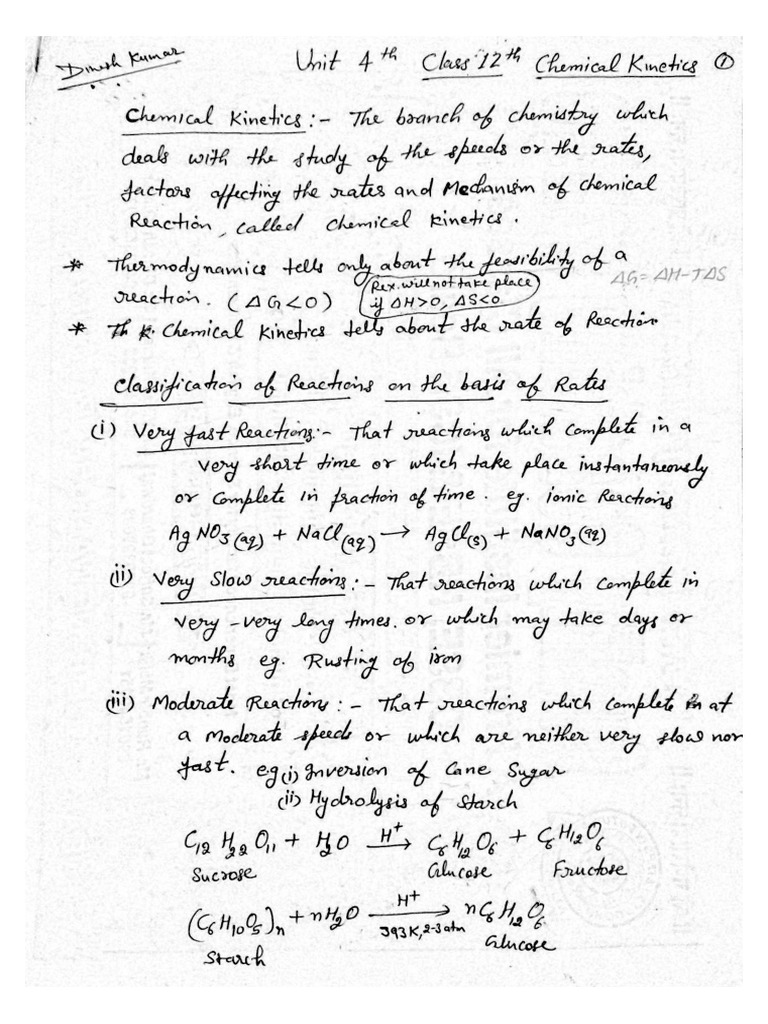 Dinesh Kumar
Unit 4th Class 12th Chemical Kinetics ①
Chemical Kinetics :- The branch of chemistry which
deals with the study of the speeds or the rates,
factors affecting the rates and Mechanism of chemical
Reaction, called chemical kinetics.
* Thermodynamics tells only about the feasibility of a
ΔG = ΔH-TΔS
reaction. (ΔG<0) Rex. will not take place
if ΔH>0, ΔS<0
* Chemical Kinetics tells about the rate of Reaction
Classification of Reactions on the basis of Rates
(i) Very fast Reactions:- That reactions which complete in a
very short time or which take place instantaneously
or complete in fraction of time. eg. ionic Reactions
AgNO₃(aq) + NaCl(aq) → AgCl(s) + NaNO₃(aq)
(ii) Very Slow reactions:- That reactions which complete in
very-very long times. or which may take days or
months eg. Rusting of iron
(iii) Moderate Reactions:- That reactions which complete at
a moderate speeds or which are neither very slow nor
fast. eg (i) Inversion of Cane Sugar
(ii) Hydrolysis of starch
C₁₂H₂₂O₁₁ + H₂O —H⁺→ C₆H₁₂O₆ + C₆H₁₂O₆
Sucrose Glucose Fructose
(C₆H₁₀O₅)n + nH₂O —H⁺→ nC₆H₁₂O₆
393K, 2-3 atm
Starch Glucose